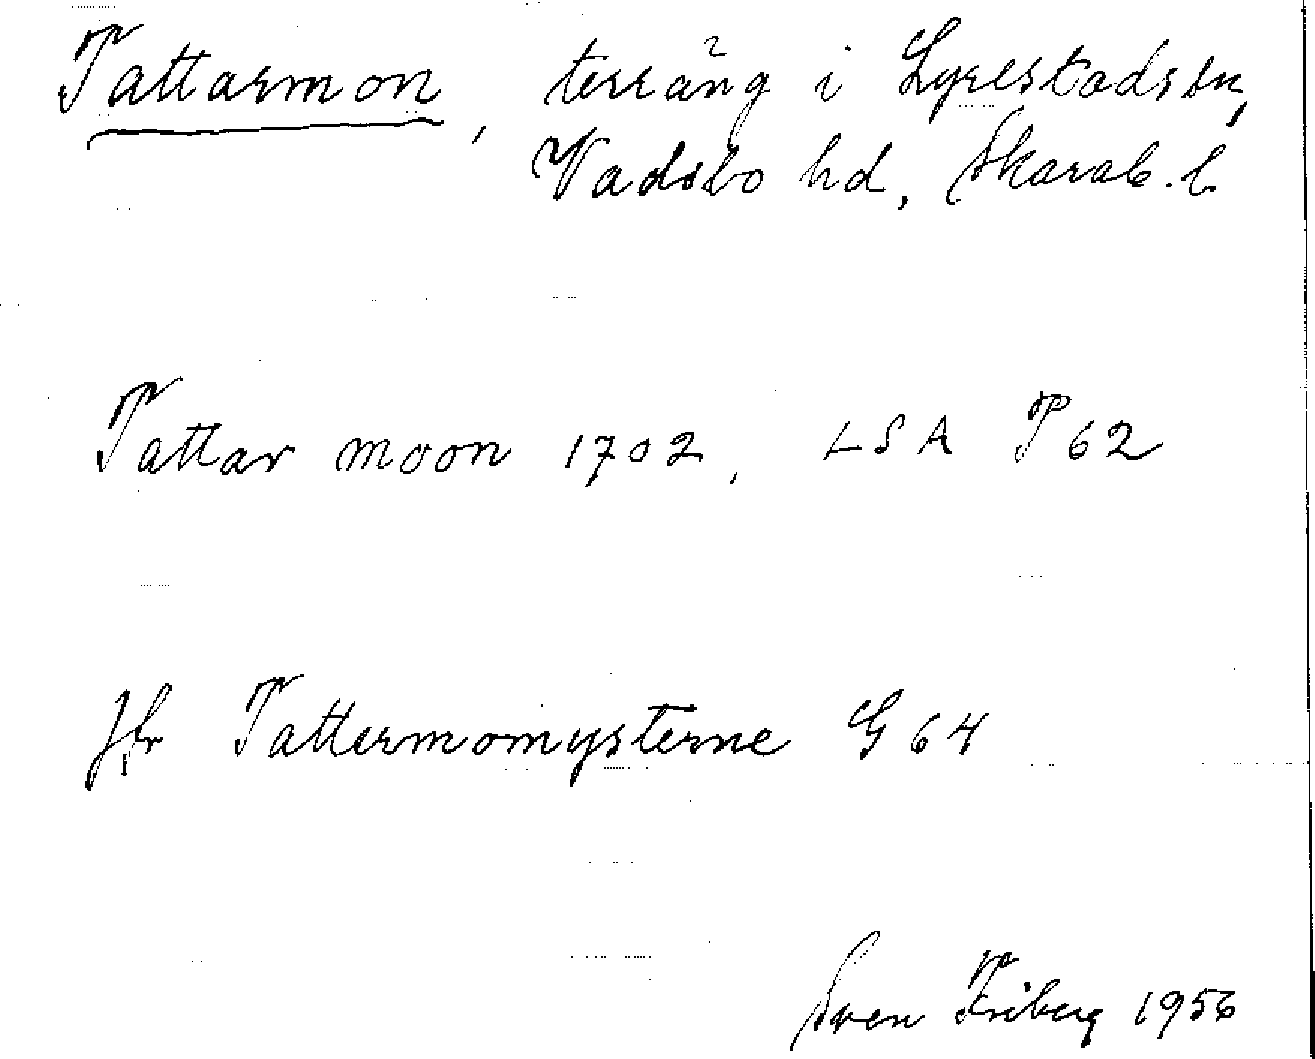 Tattarmon, terräng i Lyrestads sn,
Vadsbo hd, Skarab. l.
Tattar moon 1702, LSA P 62
Jfr Tattermomysterne G 64
Sven Friberg 1956